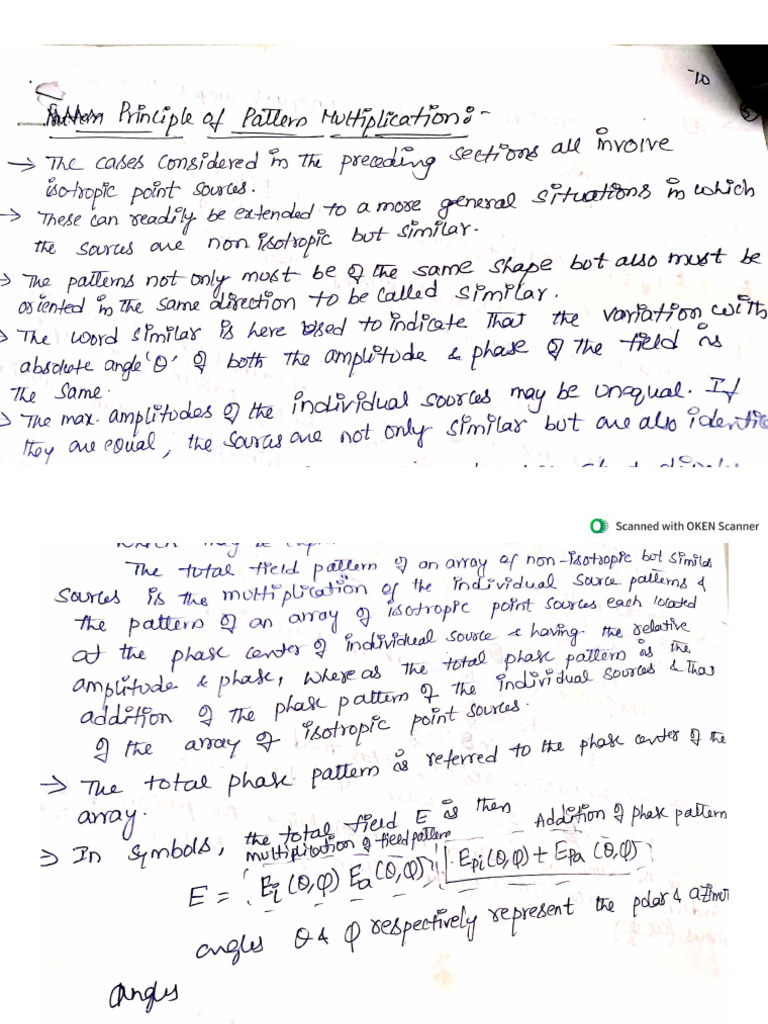 -10
Principle of Pattern Multiplication:-
→ The cases considered in the preceding sections all involve
isotropic point sources.
→ These can readily be extended to a more general situations in which
the sources are non isotropic but similar.
→ The patterns not only must be of the same shape but also must be
oriented in the same direction to be called similar.
→ The word similar is here used to indicate that the variation with
absolute angle 'θ' of both the amplitude & phase of the field is
the same.
→ The max. amplitudes of the individual sources may be unequal. If
they are equal, the sources are not only similar but are also identic
Scanned with OKEN Scanner
which may be
The total field pattern of an array of non-isotropic but similar
sources is the multiplication of the individual source patterns &
the pattern of an array of isotropic point sources each located
at the phase center of individual source & having the relative
amplitude & phase, where as the total phase pattern is the
addition of the phase pattern of the individual sources & that
of the array of isotropic point sources.
→ The total phase pattern is referred to the phase center of the
array.
→ In symbols, the total field E is then Addition of phase pattern
multiplication of field pattern
E = {Ei(θ,φ) Ea(θ,φ)} [Epi(θ,φ) + Epa(θ,φ)]
angles θ & φ respectively represent the polar & azimu
angles